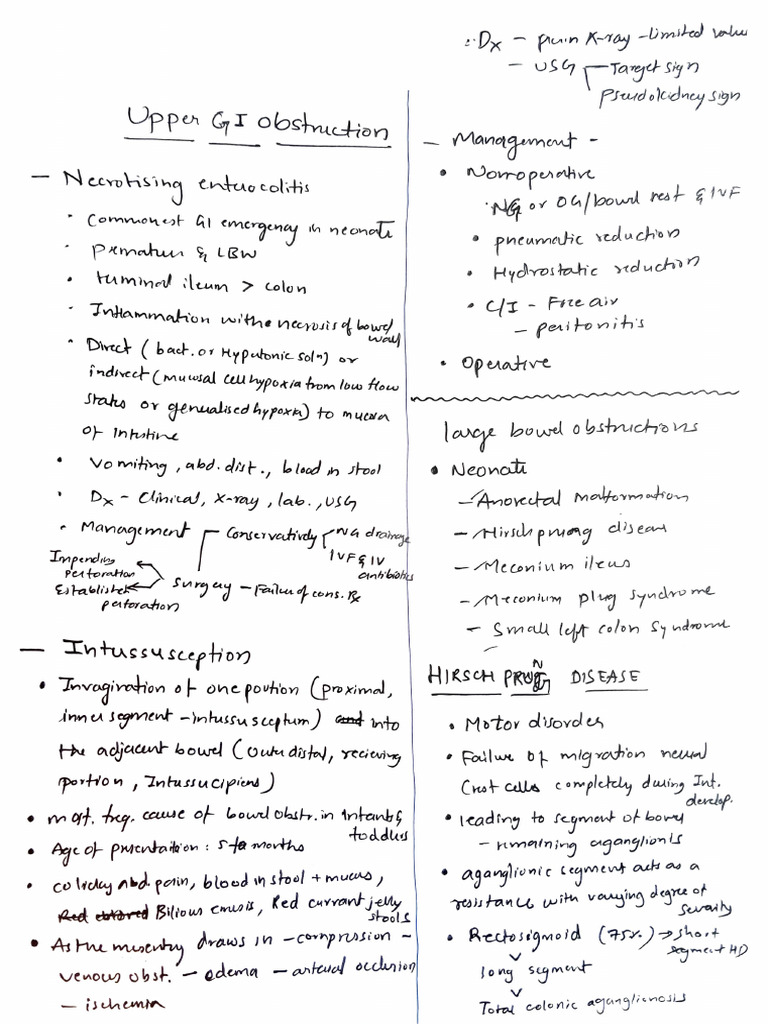 Upper GI Obstruction
— Necrotising enterocolitis
• Commonest GI emergency in neonate
• Premature & LBW
• terminal ileum > colon
• Inflammation with necrosis of bowel wall
• Direct (bact. or Hypertonic solⁿ) or
indirect (mucosal cell hypoxia from low flow
states or generalised hypoxia) to mucosa
of intestine
• Vomiting, abd. dist., blood in stool
• Dx – Clinical, X-ray, lab., USG
• Management Conservatively NG drainage
IVF & IV antibiotics
Surgery – Failure of cons. Rx
Impending perforation
Established perforation
— Intussusception
• Invagination of one portion (proximal,
inner segment – intussusceptum) into
the adjacent bowel (outer distal, recieving
portion, Intussucipiens)
• most. freq. cause of bowel obstr. in Infants &
toddlers
• Age of presentation: months
• colicky abd. pain, blood in stool + mucus,
Red colored Bilious emesis, Red currant jelly
stools
• As the mesentry draws in – compression –
venous obst. – edema – arterial occlusion
– ischemia
∴ Dx – plain X-ray – limited value
– USG Target sign
Pseudokidney sign
— Management –
• Nonoperative
• NG or OG/bowel rest & IVF
• pneumatic reduction
• Hydrostatic reduction
• C/I – Free air
– peritonitis
• Operative
large bowel obstructions
• Neonate
– Anorectal malformation
– Hirschprung disease
– Meconium ileus
– Meconium plug syndrome
– Small left colon syndrome
HIRSCHPRUNG DISEASE
• Motor disorder
• Failure of migration neural
Crest cells completely during Int.
develop.
• leading to segment of bowel
– remaining aganglionis
• aganglionic segment acts as a
resistance with varying degree of
severity
• Rectosigmoid (75%) → short
segment HD
long segment
Total colonic aganglionosis